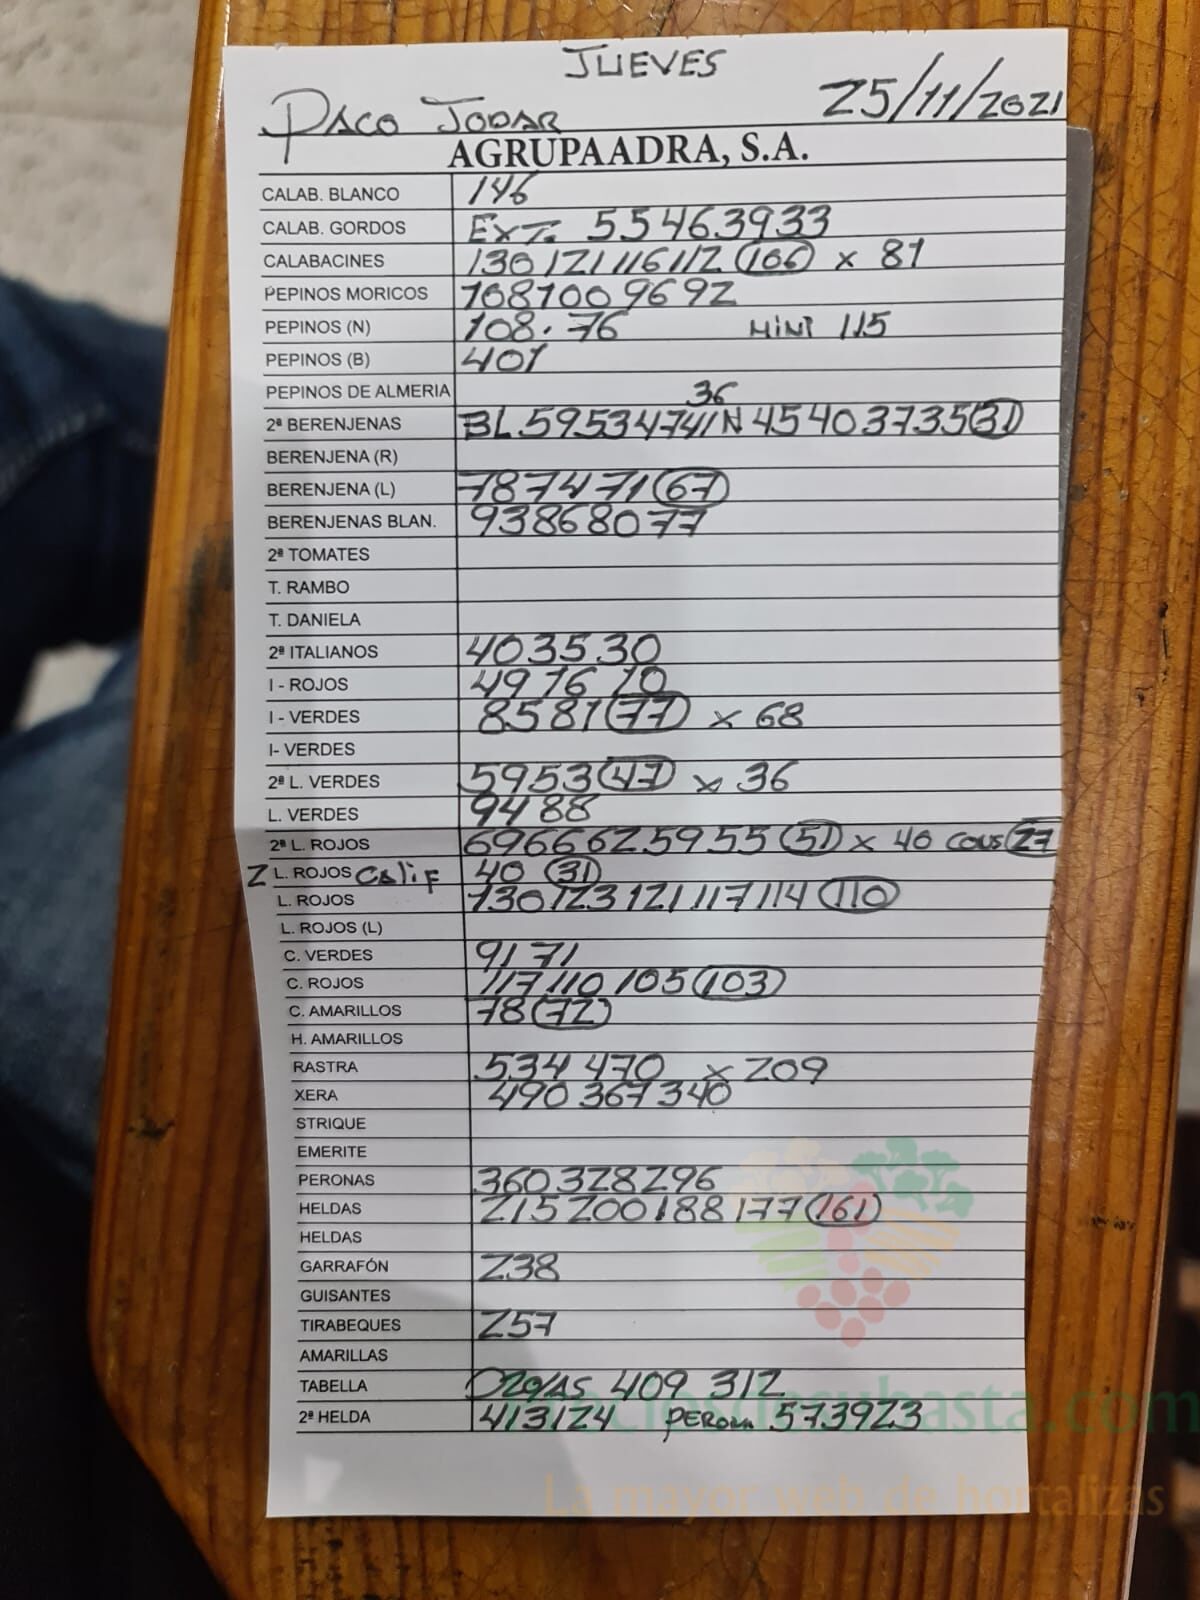 JUEVES
PACO JODAR 25/11/2021
AGRUPAADRA, S.A.
CALAB. BLANCO 146
CALAB. GORDOS EXT. 55463933
CALABACINES 130 121 116 112 106 x 81
PEPINOS MORICOS 108 100 96 92
PEPINOS (N) 108. 76 MINI 115
PEPINOS (B) 401
PEPINOS DE ALMERIA
36
2ª BERENJENAS BL 59534741 N 4540373531
BERENJENA (R)
BERENJENA (L) 78 74 71 67
BERENJENAS BLAN. 93868077
2ª TOMATES
T. RAMBO
T. DANIELA
2ª ITALIANOS 403530
I - ROJOS 49 16 10
I - VERDES 8581 77 x 68
I- VERDES
2ª L. VERDES 5953 47 x 36
L. VERDES 94 88
2ª L. ROJOS 6966625955 51 x 40 COUS 27
2 L. ROJOS Calif 40 31
L. ROJOS 130 123 121 117 114 110
L. ROJOS (L)
C. VERDES 91 71
C. ROJOS 117 110 105 103
C. AMARILLOS 78 72
H. AMARILLOS
RASTRA 534 470 x 209
XERA 490 367 340
STRIQUE
EMERITE
PERONAS 360 328 296
HELDAS 215 200 188 177 161
HELDAS
GARRAFÓN 238
GUISANTES
TIRABEQUES 257
AMARILLAS
TABELLA 409 312
2ª HELDA 413124 PERONA 573923
La mayor web de hortalizas